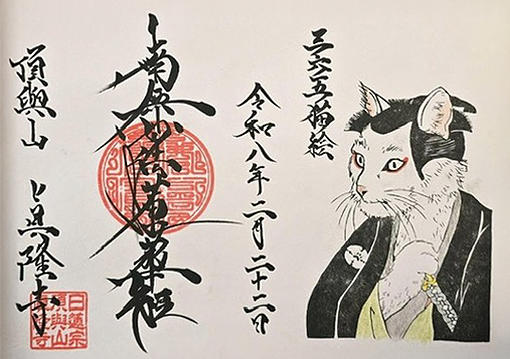 三六五猫絵
令和八年二月二十二日
南無妙法蓮華経
頂與山
隆寺
日蓮宗